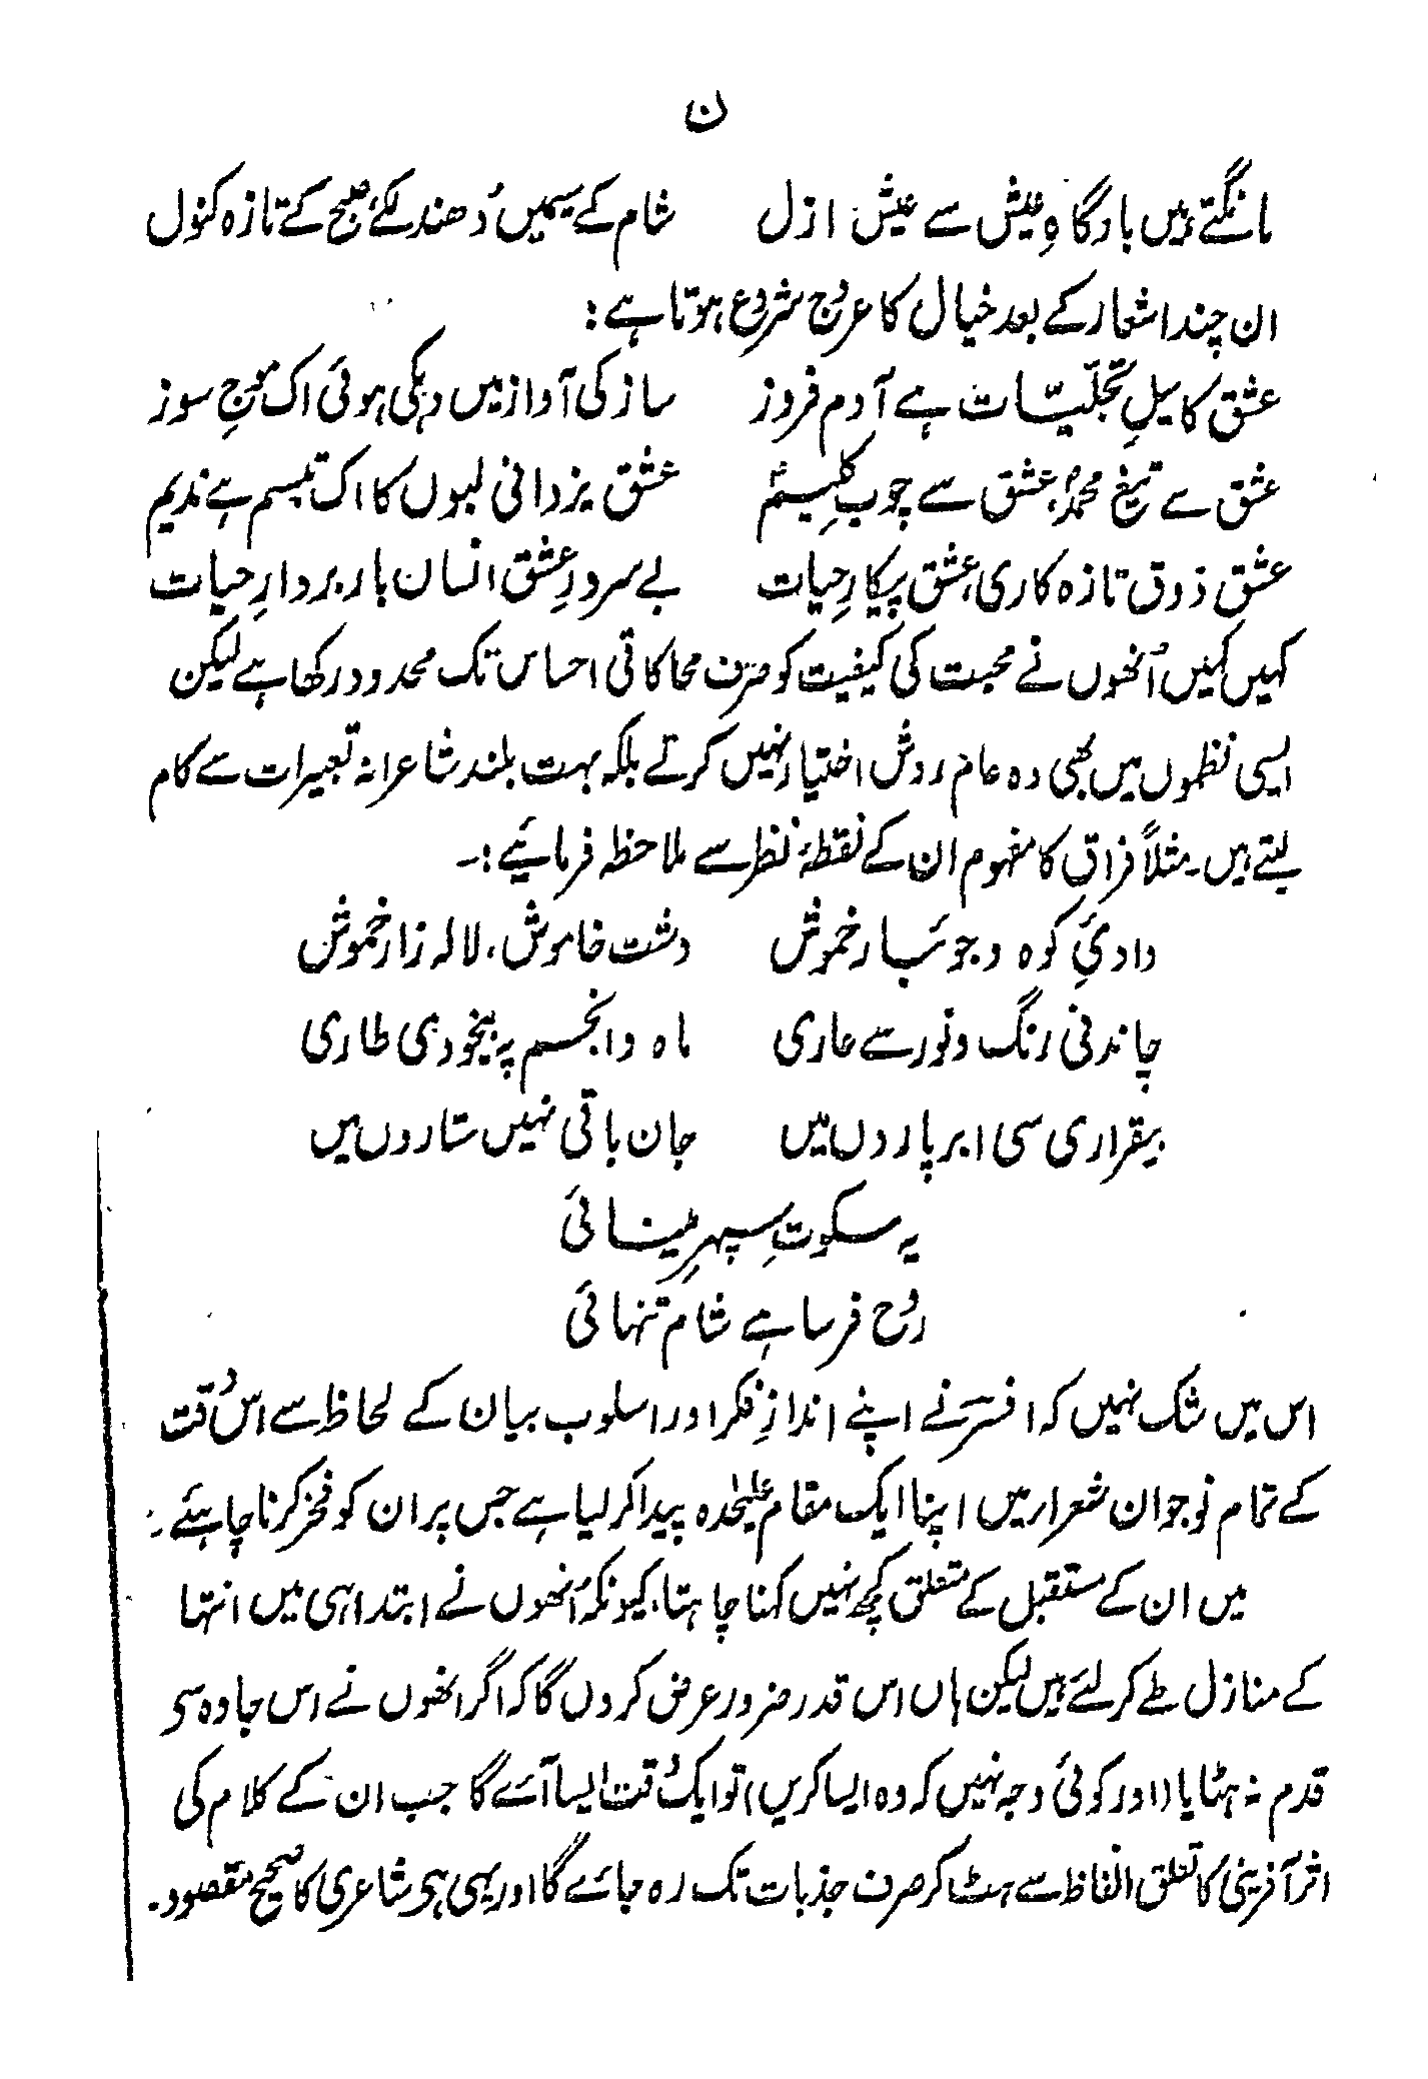 ن
مانگتے ہیں بارگاہِ عیش سے عیش ازل شام کے سیمیں دُھندلکے، صبح کے تازہ کنول
ان چند اشعار کے بعد خیال کا عروج شروع ہوتا ہے:
عشق کا سیلِ تجلّیات ہے آدم فروز ساز کی آواز میں دہکی ہوئی اک موجِ سوز
عشق سے تیغِ محمدؐ، عشق سے چوبِ کلیمؑ عشق یزدانی لبوں کا اک تبسم ہے ندیم
عشق ذوق تازہ کاری، عشق پیکارِ حیات بے سرورِ عشق انسان بار بردارِ حیات
کہیں کہیں اُنھوں نے محبت کی کیفیت کو صرف محاکاتی احساس تک محدود رکھا ہے لیکن
ایسی نظموں میں بھی وہ عام روش اختیار نہیں کرتے بلکہ بہت بلند شاعرانہ تعبیرات سے کام
لیتے ہیں۔ مثلاً فراق کا مفہوم ان کے نقطۂ نظر سے ملاحظہ فرمائیے:۔
وادئِ کوہ و جوئبار خموش دشت خاموش، لالہ زار خموش
چاندنی رنگ و نور سے عاری ماہ و انجم پہ بیخودی طاری
بیقراری سی ابر پاروں میں جان باقی نہیں ستاروں میں
یہ سکوتِ سپہرِ مینائی
روح فرسا ہے شام تنہائی
اس میں شک نہیں کہ افسر نے اپنے اندازِ فکر اور اسلوب بیان کے لحاظ سے اس وُقت
کے تمام نوجوان شعراء میں اپنا ایک مقام علیٰحدہ پیدا کر لیا ہے جس پر ان کو فخر کرنا چاہئے۔
میں ان کے مستقبل کے متعلق کچھ نہیں کہنا چاہتا، کیونکہ اُنھوں نے ابتدا ہی میں انتہا
کے منازل طے کر لئے ہیں لیکن ہاں اس قدر ضرور عرض کروں گا کہ اگر انھوں نے اس جادہ سی
قدم نہ ہٹایا (اور کوئی وجہ نہیں کہ وہ ایسا کریں) تو ایک وُقت ایسا آئے گا جب ان کے کلام کی
اثر آفرینی کا تعلق الفاظ سے ہٹ کر صرف جذبات تک رہ جائے گا اور یہی ہی شاعری کا صحیح مقصود۔